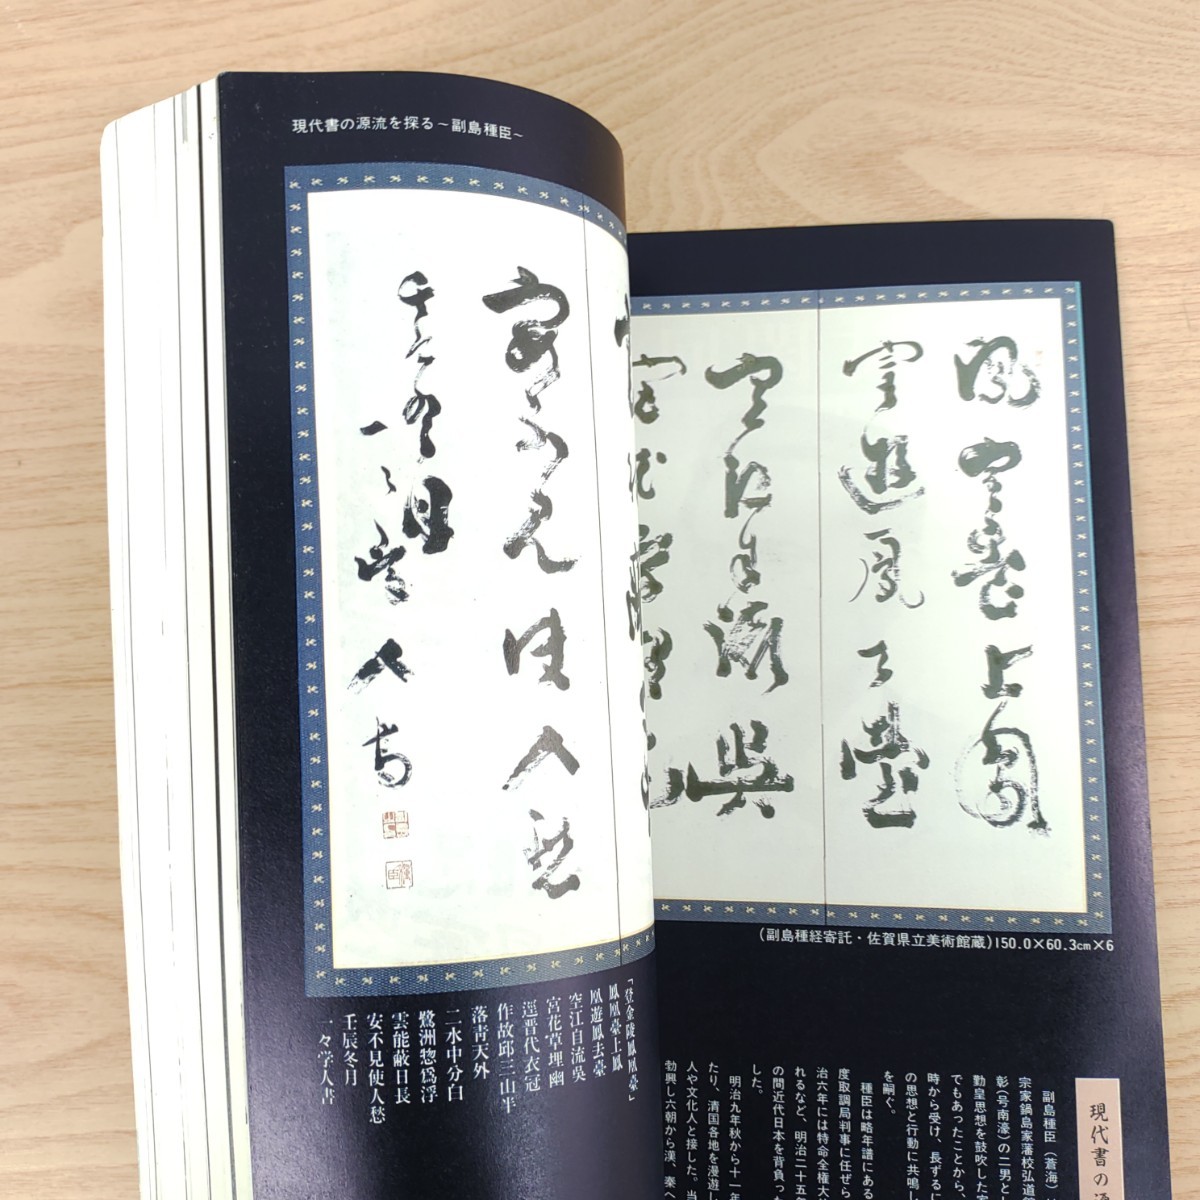 現代書の源流を探る～副島種臣～
鳳凰臺上鳳
凰遊鳳去臺
空江自流呉
安不見使人愁
壬辰冬月
一々学人書
「登金陵鳳凰臺」
鳳凰臺上鳳
凰遊鳳去臺
空江自流呉
宮花草埋幽
逕晋代衣冠
作故邱三山半
落靑天外
二水中分白
鷺洲惣爲浮
雲能蔽日長
安不見使人愁
壬辰冬月
一々学人書
(副島種経寄託・佐賀県立美術館蔵)150.0×60.3cm×6
現代書の
副島種臣（蒼海）
宗家鍋島家藩校弘道
彰（号南濠）の二男と
勤皇思想を鼓吹した
でもあったことから
時から受け、長ずる
の思想と行動に共鳴し
を嗣ぐ。
種臣は略年譜にある
度取調局判事に任ぜら
治六年には特命全権大
れるなど、明治二十五
の間近代日本を背負っ
した。
明治九年秋から十一年
たり、清国各地を漫遊し
人や文化人と接した。当
勃興し六朝から漢、秦へ